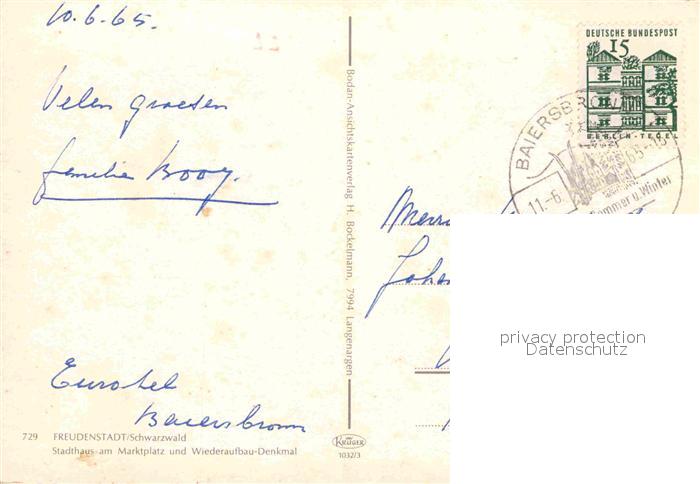 10.6.65.
Velen groeten
familie Booy.
Eurotel
Baiersbronn
729 FREUDENSTADT/Schwarzwald
Stadthaus am Marktplatz und Wiederaufbau-Denkmal
Bodan-Ansichtskartenverlag H. Bockelmann, 7994 Langenargen
KRÜGER
1032/3
DEUTSCHE BUNDESPOST
15
BERLIN-TEGEL
BAIERSBR
11.-6.
Sommer u. Winter
privacy protection
Datenschutz